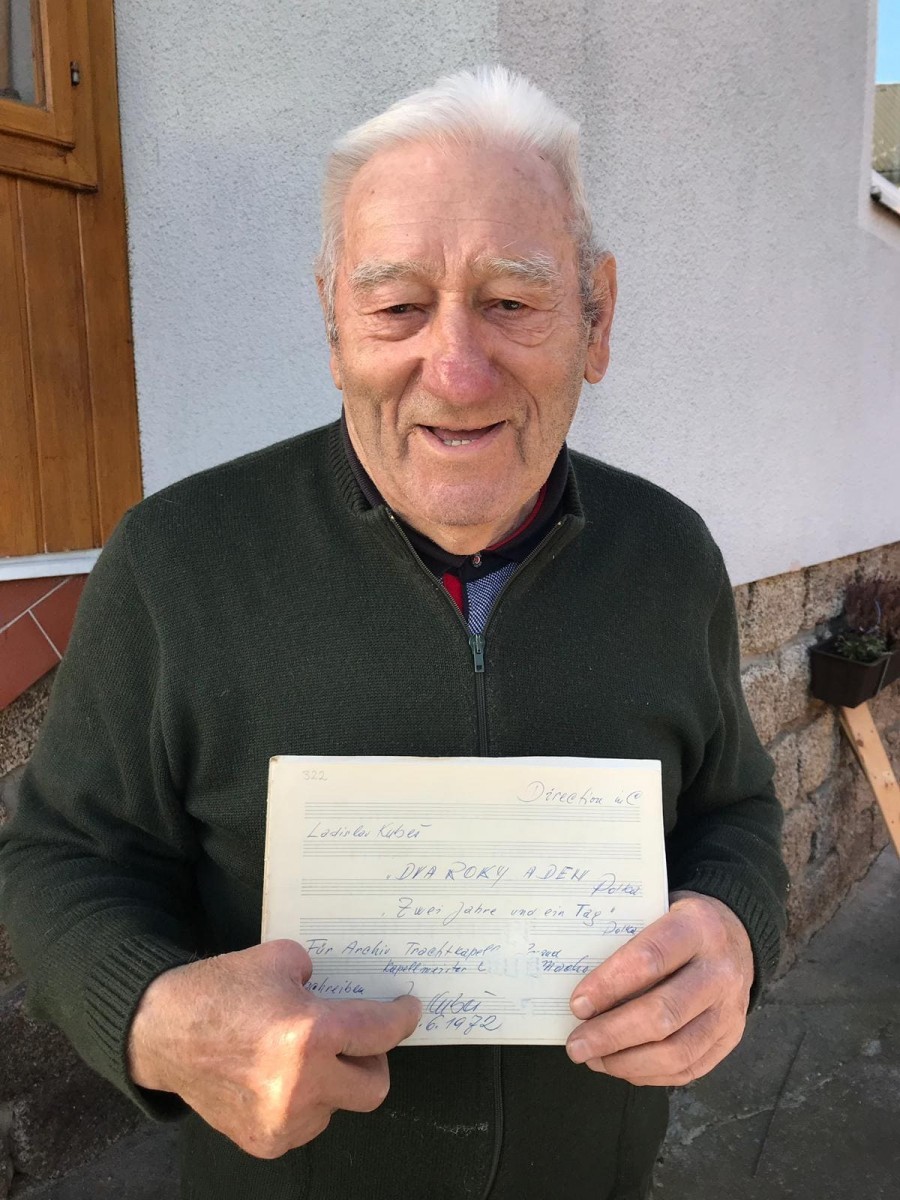 322
Direction in C
Ladislav Kubeš
"DVA ROKY A DEN
Polka
"Zwei Jahre und ein Tag"
Polka
Für Archiv Trachtkapell
Kapellmeister
schreiben
Kubeš
.6.1972